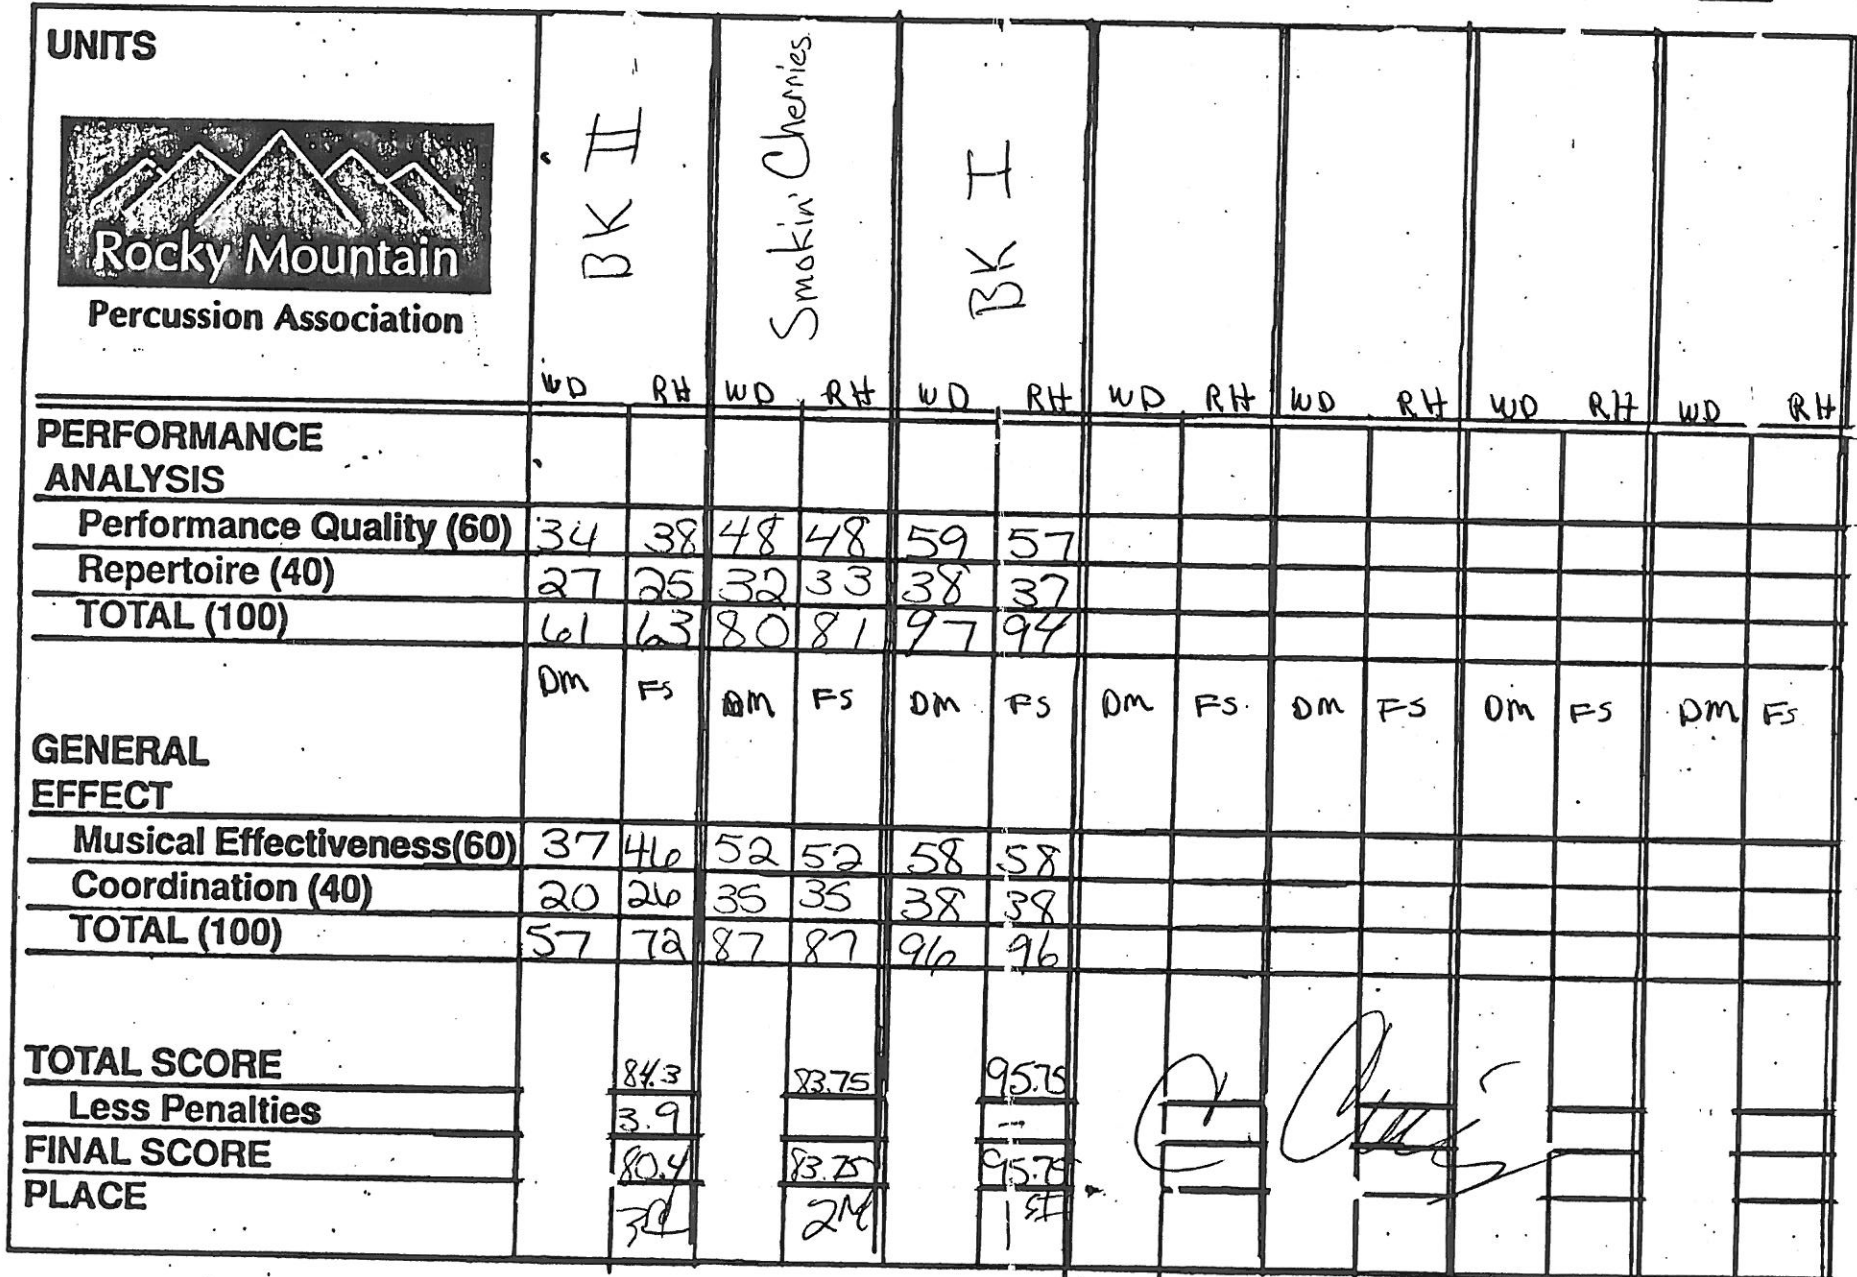 UNITS
BK II
Smokin' Cherries
BK I
Rocky Mountain
Percussion Association
WD RH WD RH WD RH WD RH WD RH WD RH WD RH
PERFORMANCE
ANALYSIS
Performance Quality (60) 34 38 48 48 59 57
Repertoire (40) 27 25 32 33 38 37
TOTAL (100) 61 63 80 81 97 94
Dm FS Dm FS Dm FS Dm FS. Dm FS Dm FS Dm FS
GENERAL
EFFECT
Musical Effectiveness(60) 37 46 52 52 58 58
Coordination (40) 20 26 35 35 38 38
TOTAL (100) 57 72 87 87 96 96
TOTAL SCORE 84.3 83.75 95.75
Less Penalties 3.9 -
FINAL SCORE 80.4 83.75 95.75
PLACE 3rd 2nd 1st